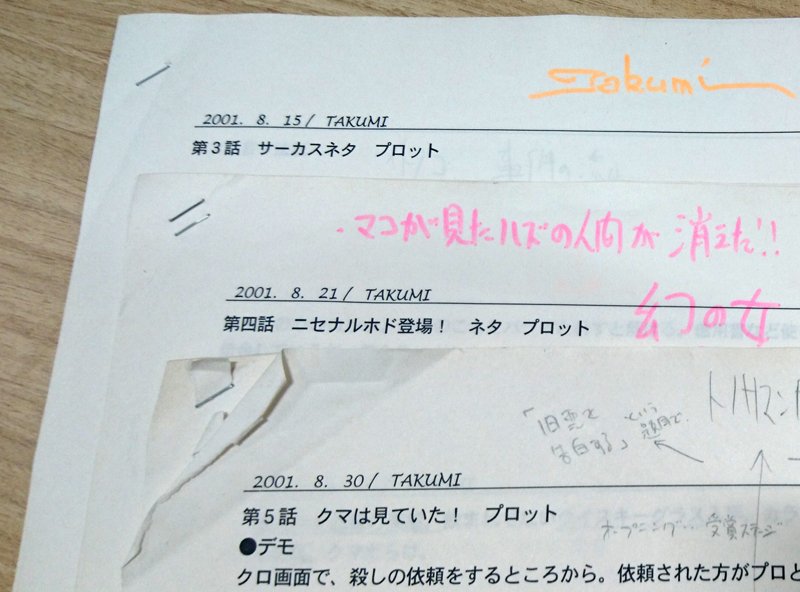 Takumi
2001. 8. 15/ TAKUMI
第3話 サーカスネタ プロット
・マコが見たハズの人間が 消えた!!
2001. 8. 21/ TAKUMI
幻の女
第四話 ニセナルホド登場! ネタ プロット
トノサマン
「旧悪を という
告白する」 題目で
2001. 8. 30/ TAKUMI
第5話 クマは見ていた! プロット
オープニング… 受賞ステージ
●デモ
クロ画面で、殺しの依頼をするところから。依頼された方がプロと